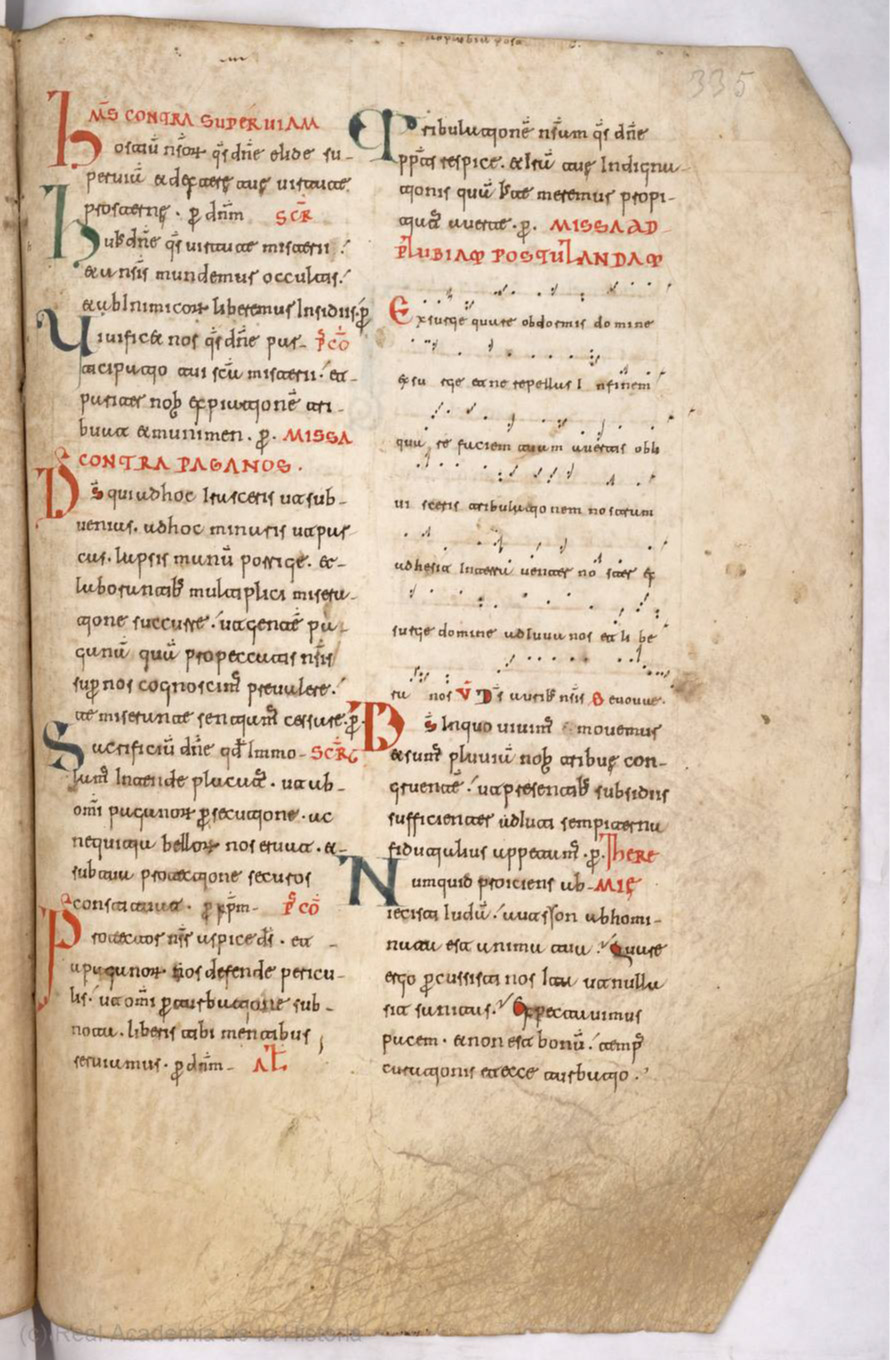 335
MS CONTRA SUPERUIAM
Hostiū nr̄or qs dn̄e elide su-
perviā & dextere tue virtute
prosterne. p dn̄m SCR
Hub dn̄e qs virtute misterii
& a nr̄is mundemur occultis
& ab inimicor liberemur insidiis. p
Vivificet nos qs dn̄e par- PCO
ticipatio tui scī misterii et
pariter nob expiationē tri-
buat & munimen. p. MISSA
CONTRA PAGANOS.
Ds qui ad hoc irasceris ut sub-
venias. ad hoc minaris ut par-
cas. lapsis manū porrige. &
laborantib multiplici misera-
tione succurre. ut gentē pa-
ganā quā pro peccatis nr̄is
supr nos cognoscim̄ prevalere.
te miserante sentiam cessare. p.
Sacrificiū dn̄e qd immo- SCR
lam intende placat. ut ab
omi paganor psecutione. ac
nequitia bellor nos eruat. &
sub tui protectione securos
constituat. p xp̄m- PCO
Protector nr̄ aspice ds. et
a paganor nos defende pericu-
lis. ut omi pturbatione sub-
nota. liberis tibi mentibus
serviamus. p dn̄m- ALT
Tribulationē nr̄am qs dn̄e
pptis respice. & irā tue indigna-
tionis quā iste meremur propi-
tiat averte. p. MISSA AD
PLUBIAM POSTULANDAM
Exsurge quare obdormis domine
exsurge et ne repellas in finem
quare faciem tuam avertis obli
visceris tribulationem nostram
adhesit in terra venter noster ex
surge domine adiuva nos et libe
ra nos V Ds aurib nr̄is Seuouae.
Ds in quo vivim movemur
& sum pluviā nob tribue con-
gruentē. ut presentib subsidiis
sufficienter adiuti sempiterna
fiducialius appetam. p. IHERE
Numquid proiciens ab- MIE
iecisti iudā. aut sion abhomi-
nata est anima tua. Quare
ergo pcussisti nos ita ut nulla
sit sanitas. Expectavimus
pacem. & non est bonū. temp
curationis et ecce turbatio.
(c) Real Academia de la Historia